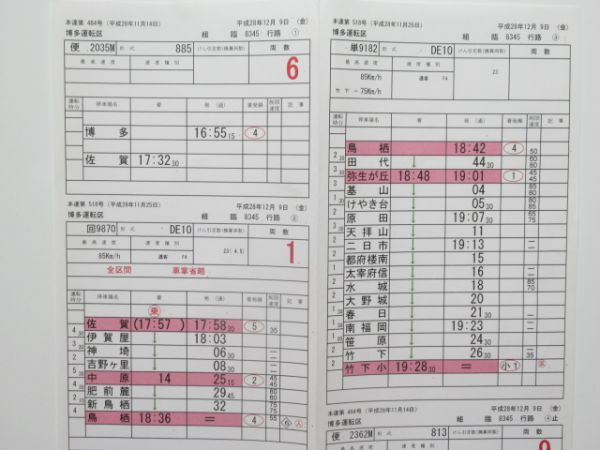 本運第 464号 (平成28年11月14日) 平成28年12月 9日 (金)
博多運転区 組 臨 8345 行路 ①
便 2035M 形式 885 けん引定数(換算両数) 両数
最高速度 速度種別 6
運転時分 停車場名 着 発(通) 着発線 制限速度 記事
博多 16:55 15 ④
佐賀 17:32 30
本運第 518号 (平成28年11月25日) 平成28年12月 9日 (金)
博多運転区 組 臨 8345 行路 ②
回9870 形式 DE10 けん引定数(換算両数) 両数
最高速度 速度種別 23(4.5) 1
85Km/H 通客
全区間 車掌省略
運転時分 停車場名 着 発(通) 着発線 制限速度 記事
佐賀 (17:57) 17:58 30 ⑤ 35
4 伊賀屋 ↓ 18:03
神埼 ↓ 06 30
吉野ヶ里 ↓ 08 30
中原 14 25 15 ②
肥前麓 ↓ 29 45
新鳥栖 ↓ 32
鳥栖 18:36 = ④ 55
本運第 518号 (平成28年11月25日) 平成28年12月 9日 (金)
博多運転区 組 臨 8345 行路 ③
単9182 形式 DE10 けん引定数(換算両数) 両数
最高速度 速度種別 23
85Km/H 通客
竹下 -75Km/H
運転時分 停車場名 着 発(通) 着発線 制限速度 記事
鳥栖 18:42 ④ 50
田代 ↓ 44 30
弥生が丘 18:48 19:01 ①
基山 ↓ 04
けやき台 ↓ 05 30
原田 ↓ 19:07 30
天拝山 ↓ 11
二日市 ↓ 19:13
都府楼南 ↓ 15
太宰府信 ↓ 16
水城 ↓ 18
大野城 ↓ 20
春日 ↓ 21
南福岡 ↓ 19:23
笹原 ↓ 24 30
竹下 ↓ 26 30 35
竹下小 19:28 30 = 小1
本運第 464号 (平成28年11月14日) 平成28年12月 9日 (金)
博多運転区 組 臨 8345 行路 ④止
便 2362M 形式 813 けん引定数(換算両数) 両数